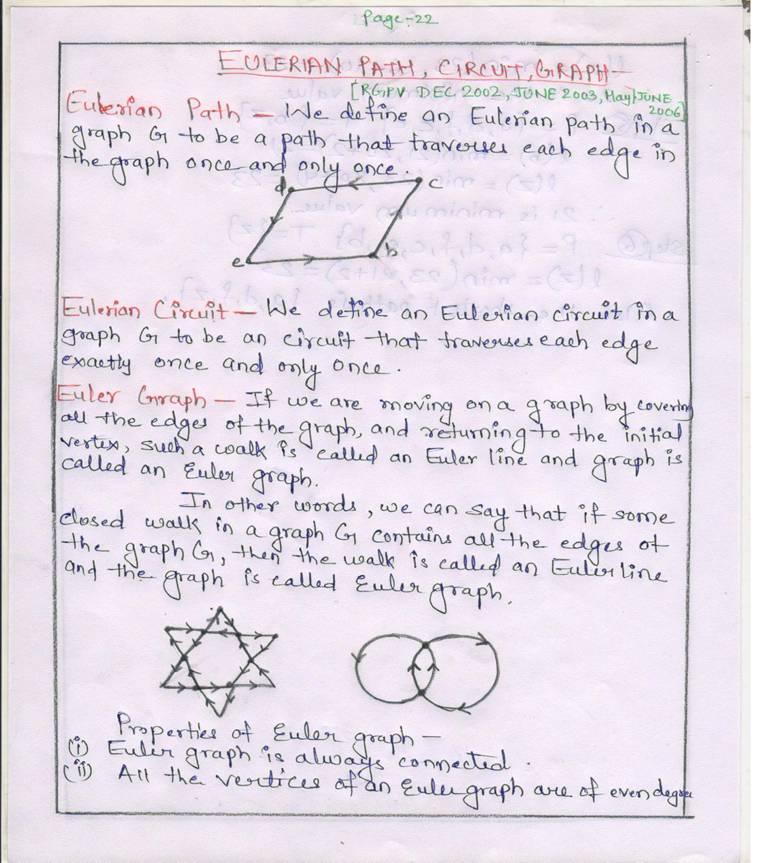 Page-22
EULERIAN PATH, CIRCUIT, GRAPH-
[RGPV DEC 2002, JUNE 2003, May/JUNE
2006]
Eulerian Path - We define an Eulerian path in a
graph G to be a path that traverses each edge in
the graph once and only once.
d
c
e
b
Eulerian Circuit - We define an Eulerian circuit in a
graph G to be an circuit that traverses each edge
exactly once and only once.
Euler Graph - If we are moving on a graph by covering
all the edges of the graph, and returning to the initial
vertex, such a walk is called an Euler line and graph is
called an Euler graph.
In other words, we can say that if some
closed walk in a graph G contains all the edges of
the graph G, then the walk is called an Euler line
and the graph is called Euler graph.
Properties of Euler graph -
(i) Euler graph is always connected.
(ii) All the vertices of an Euler graph are of even degree